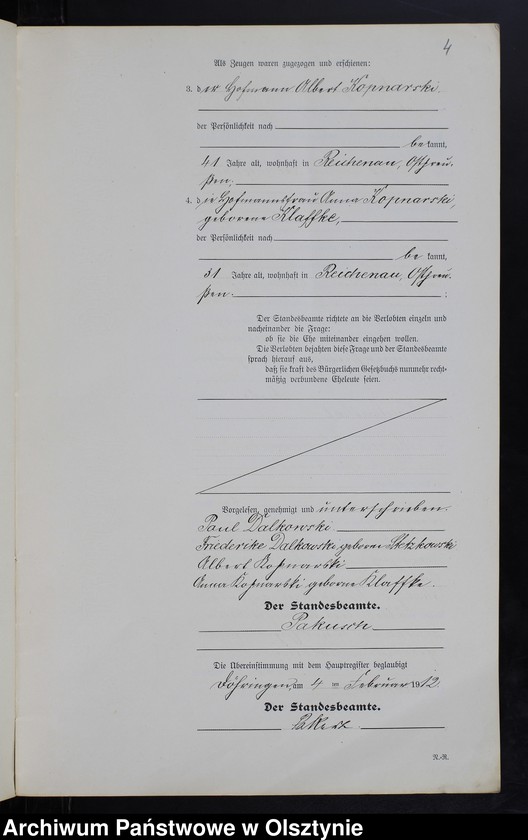 4
Als Zeugen waren zugezogen und erschienen:
3. der Hofmann Albert Kopnarski
der Persönlichkeit nach
be kannt,
41 Jahre alt, wohnhaft in Reichenau, Ostpreu-
ßen;
4. die Hofmannsfrau Anna Kopnarski,
geborene Klaffke,
der Persönlichkeit nach
be kannt,
31 Jahre alt, wohnhaft in Reichenau, Ostpreu-
ßen. ;
Der Standesbeamte richtete an die Verlobten einzeln und
nacheinander die Frage:
ob sie die Ehe miteinander eingehen wollen.
Die Verlobten bejahten diese Frage und der Standesbeamte
sprach hierauf aus,
daß sie kraft des Bürgerlichen Gesetzbuchs nunmehr recht-
mäßig verbundene Eheleute seien.
Vorgelesen, genehmigt und unterschrieben.
Paul Dalkowski
Friederike Dalkowski geborene
Albert Kopnarski
Anna Kopnarski geborne Klaffke.
Der Standesbeamte.
Pakusch
Die Übereinstimmung mit dem Hauptregister beglaubigt
Döhringen, am 4 ten Februar 1912.
Der Standesbeamte.
N.-R.
Archiwum Państwowe w Olsztynie